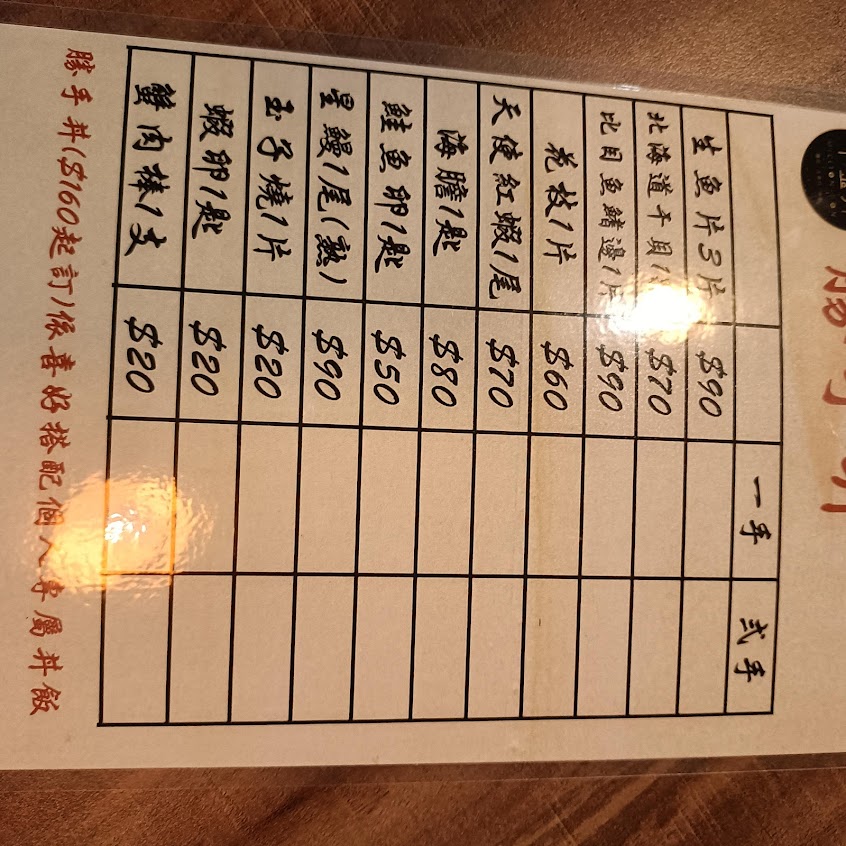 勝手丼
一手 弍手
生魚片3片 $90
北海道干貝1 $70
比目魚鰭邊1片 $90
花枝1片 $60
天使紅蝦1尾 $70
海膽1匙 $80
鮭魚卵1匙 $50
星鰻1尾(熟) $90
玉子燒1片 $20
蝦卵1匙 $20
蟹肉棒1支 $20
勝手丼($160起訂)依喜好搭配個人專屬丼飯